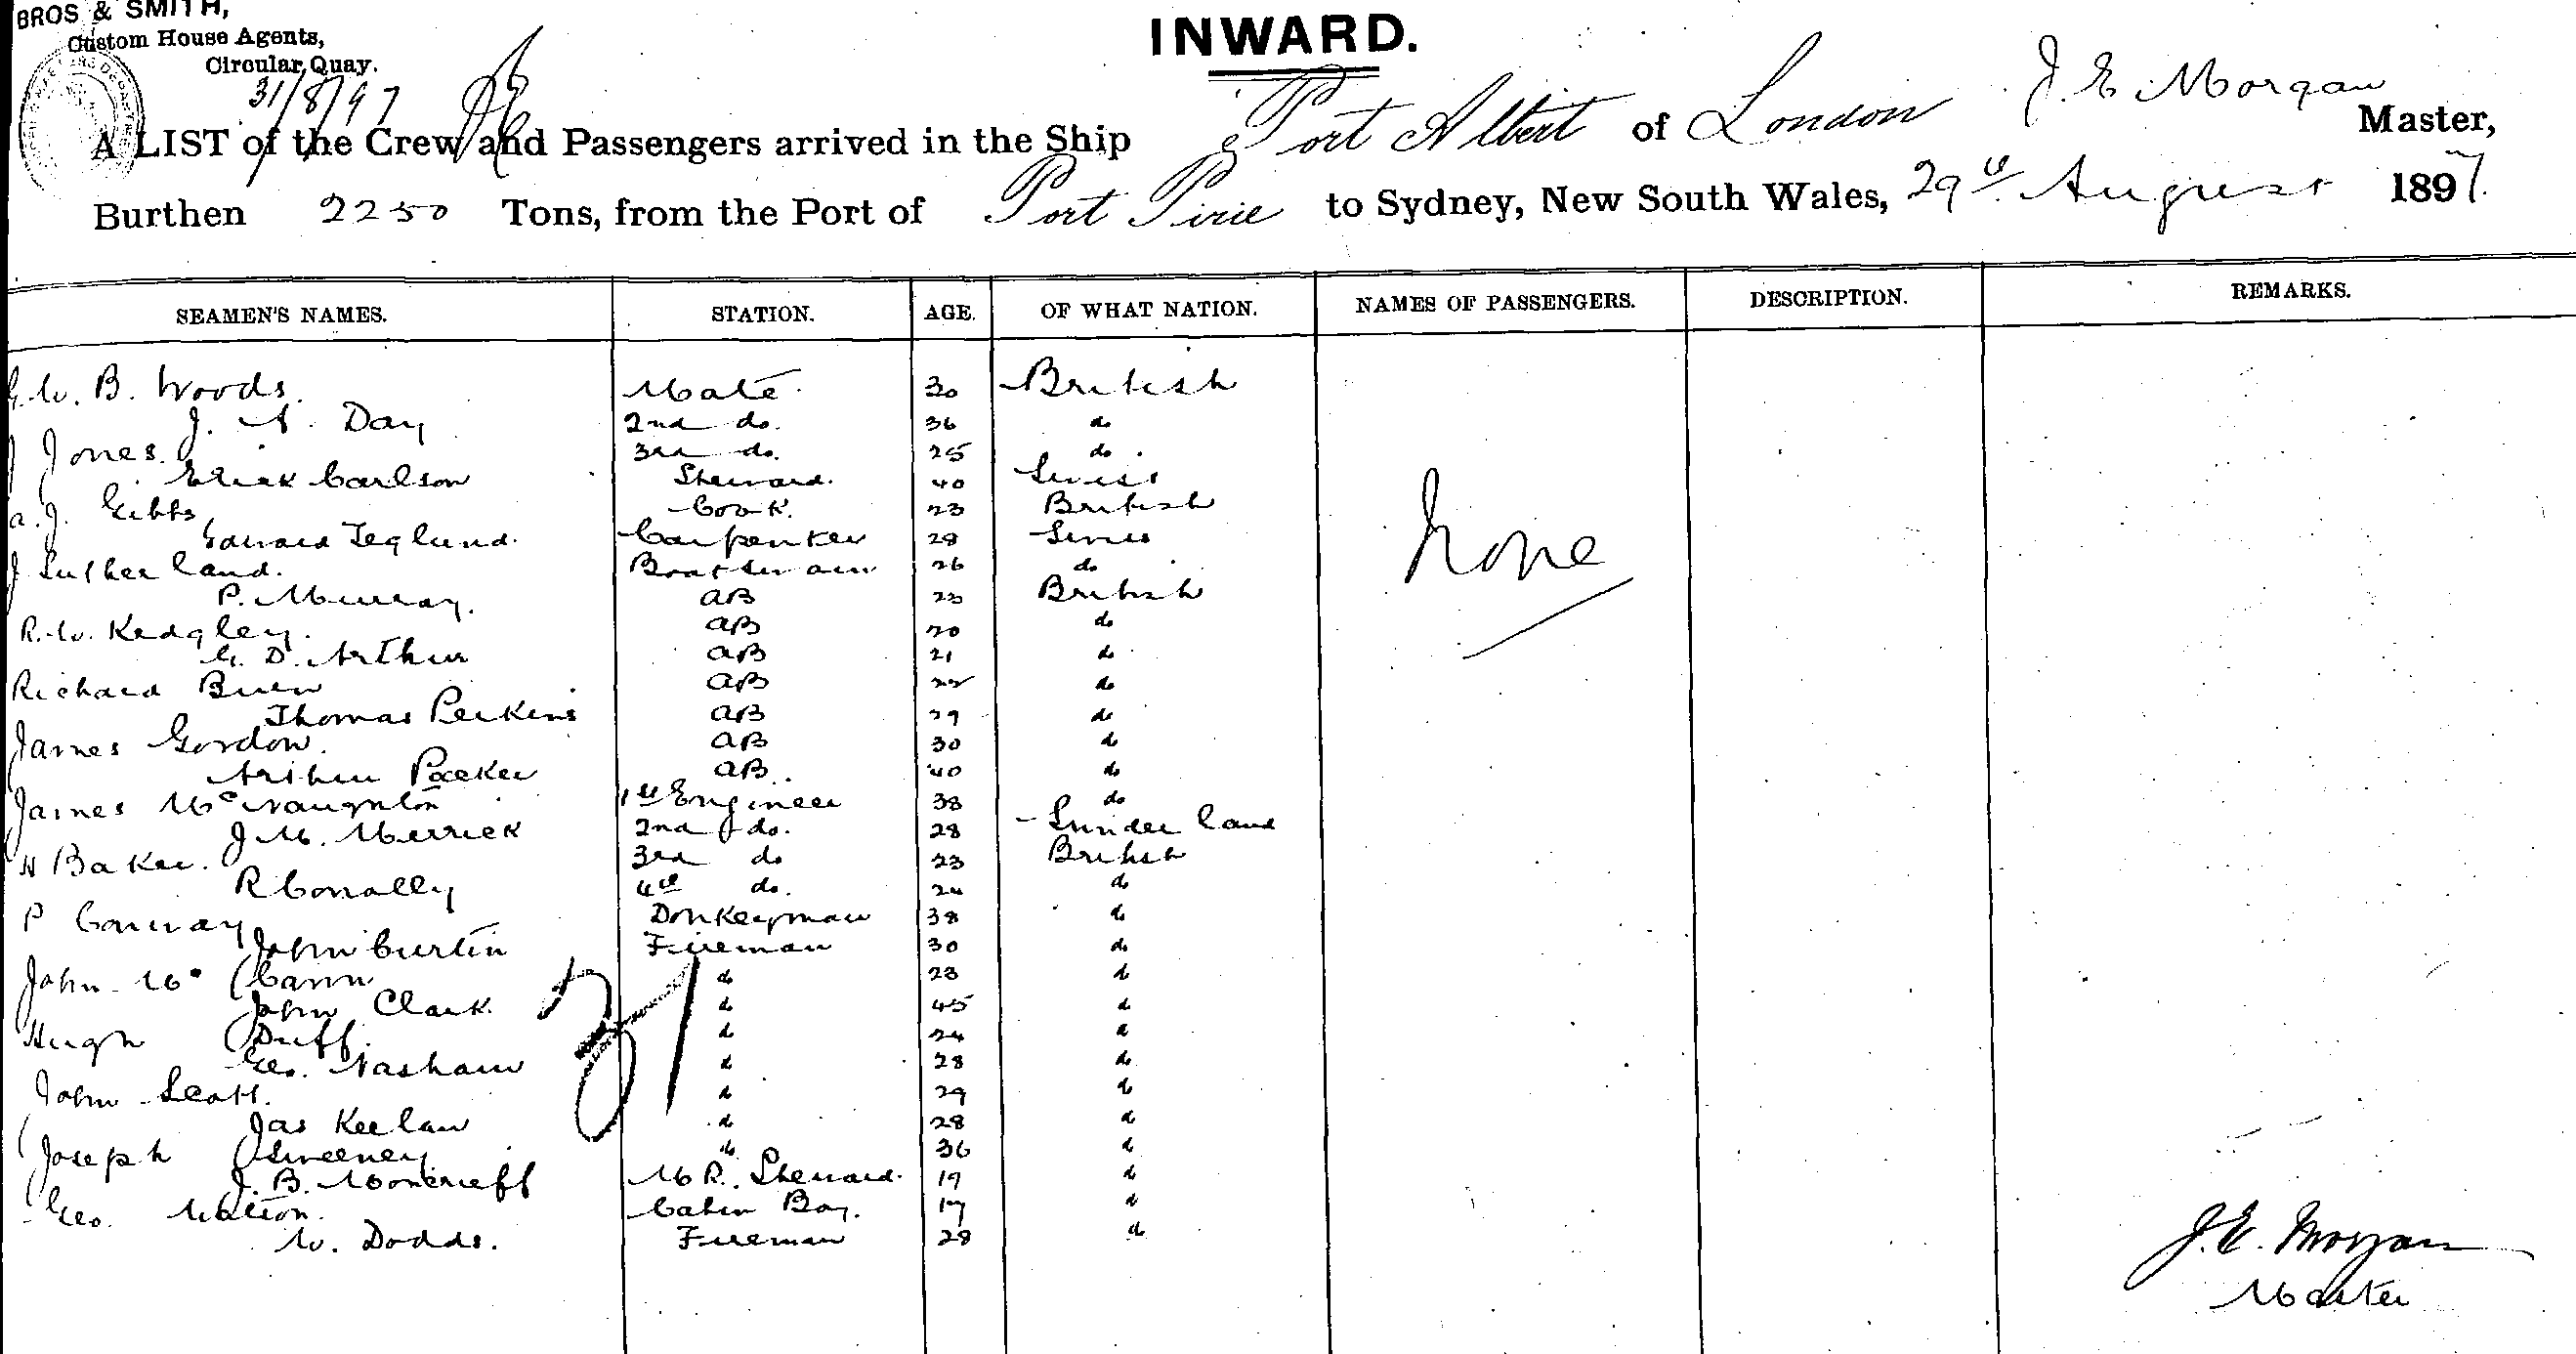 BROS & SMITH,
Custom House Agents,
Circular Quay.
31/8/97
INWARD.
A LIST of the Crew and Passengers arrived in the Ship Port Albert of London J. E. Morgan Master,
Burthen 2250 Tons, from the Port of Port Pirie to Sydney, New South Wales, 29th August 1897.
SEAMEN'S NAMES. STATION. AGE. OF WHAT NATION. NAMES OF PASSENGERS. DESCRIPTION. REMARKS.
G. W. B. Woods. Mate. 30 British
J. A. Day 2nd do. 36 do
J Jones. 3rd do. 25 do.
Erick Carlson Steward. 40 Swiss
A. J. Gibbs Cook. 23 British
Edward Teglund. Carpenter 28 Swiss
J Sutherland. Boatswain 26 do
None
P. Murray. AB 23 British
R. W. Kedgley. AB 20 do
G. D. Arthur AB 21 do
Richard AB 22 do
Thomas Perkins AB 29 do
James Gordon. AB 30 do
Arthur Parker AB. 40 do
James McNaughton 1st Engineer 38 do
J. M. Merrick 2nd do. 28 Sunderland
H Baker. 3rd do 23 British
R Conally 4th do. 24 do
P Conway Donkeyman 38 do
John Curtin Fireman 30 do
John Mc Cann do 23 do
John Clark. do 45 do
31
Hugh Duff. do 24 do
Geo. Nasham do 28 do
John Scott. do 29 do
Jas Keelan do 28 do
Joseph Sweeney do 36 do
J. B. Moncrieff M R. Steward. 19 do
Geo. Cabin Boy. 17 do
W. Dodds. Fireman 28 do
J. E. Morgan
Master